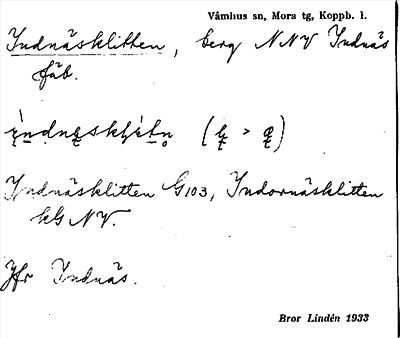 Våmhus sn, Mora tg, Koppb. l.
Indnäsklitten, berg NNV Indnäs
fäb.
Indnäsklitten G103, Indornäsklitten
kG NV.
Jfr Indnäs.
Bror Lindén 1933